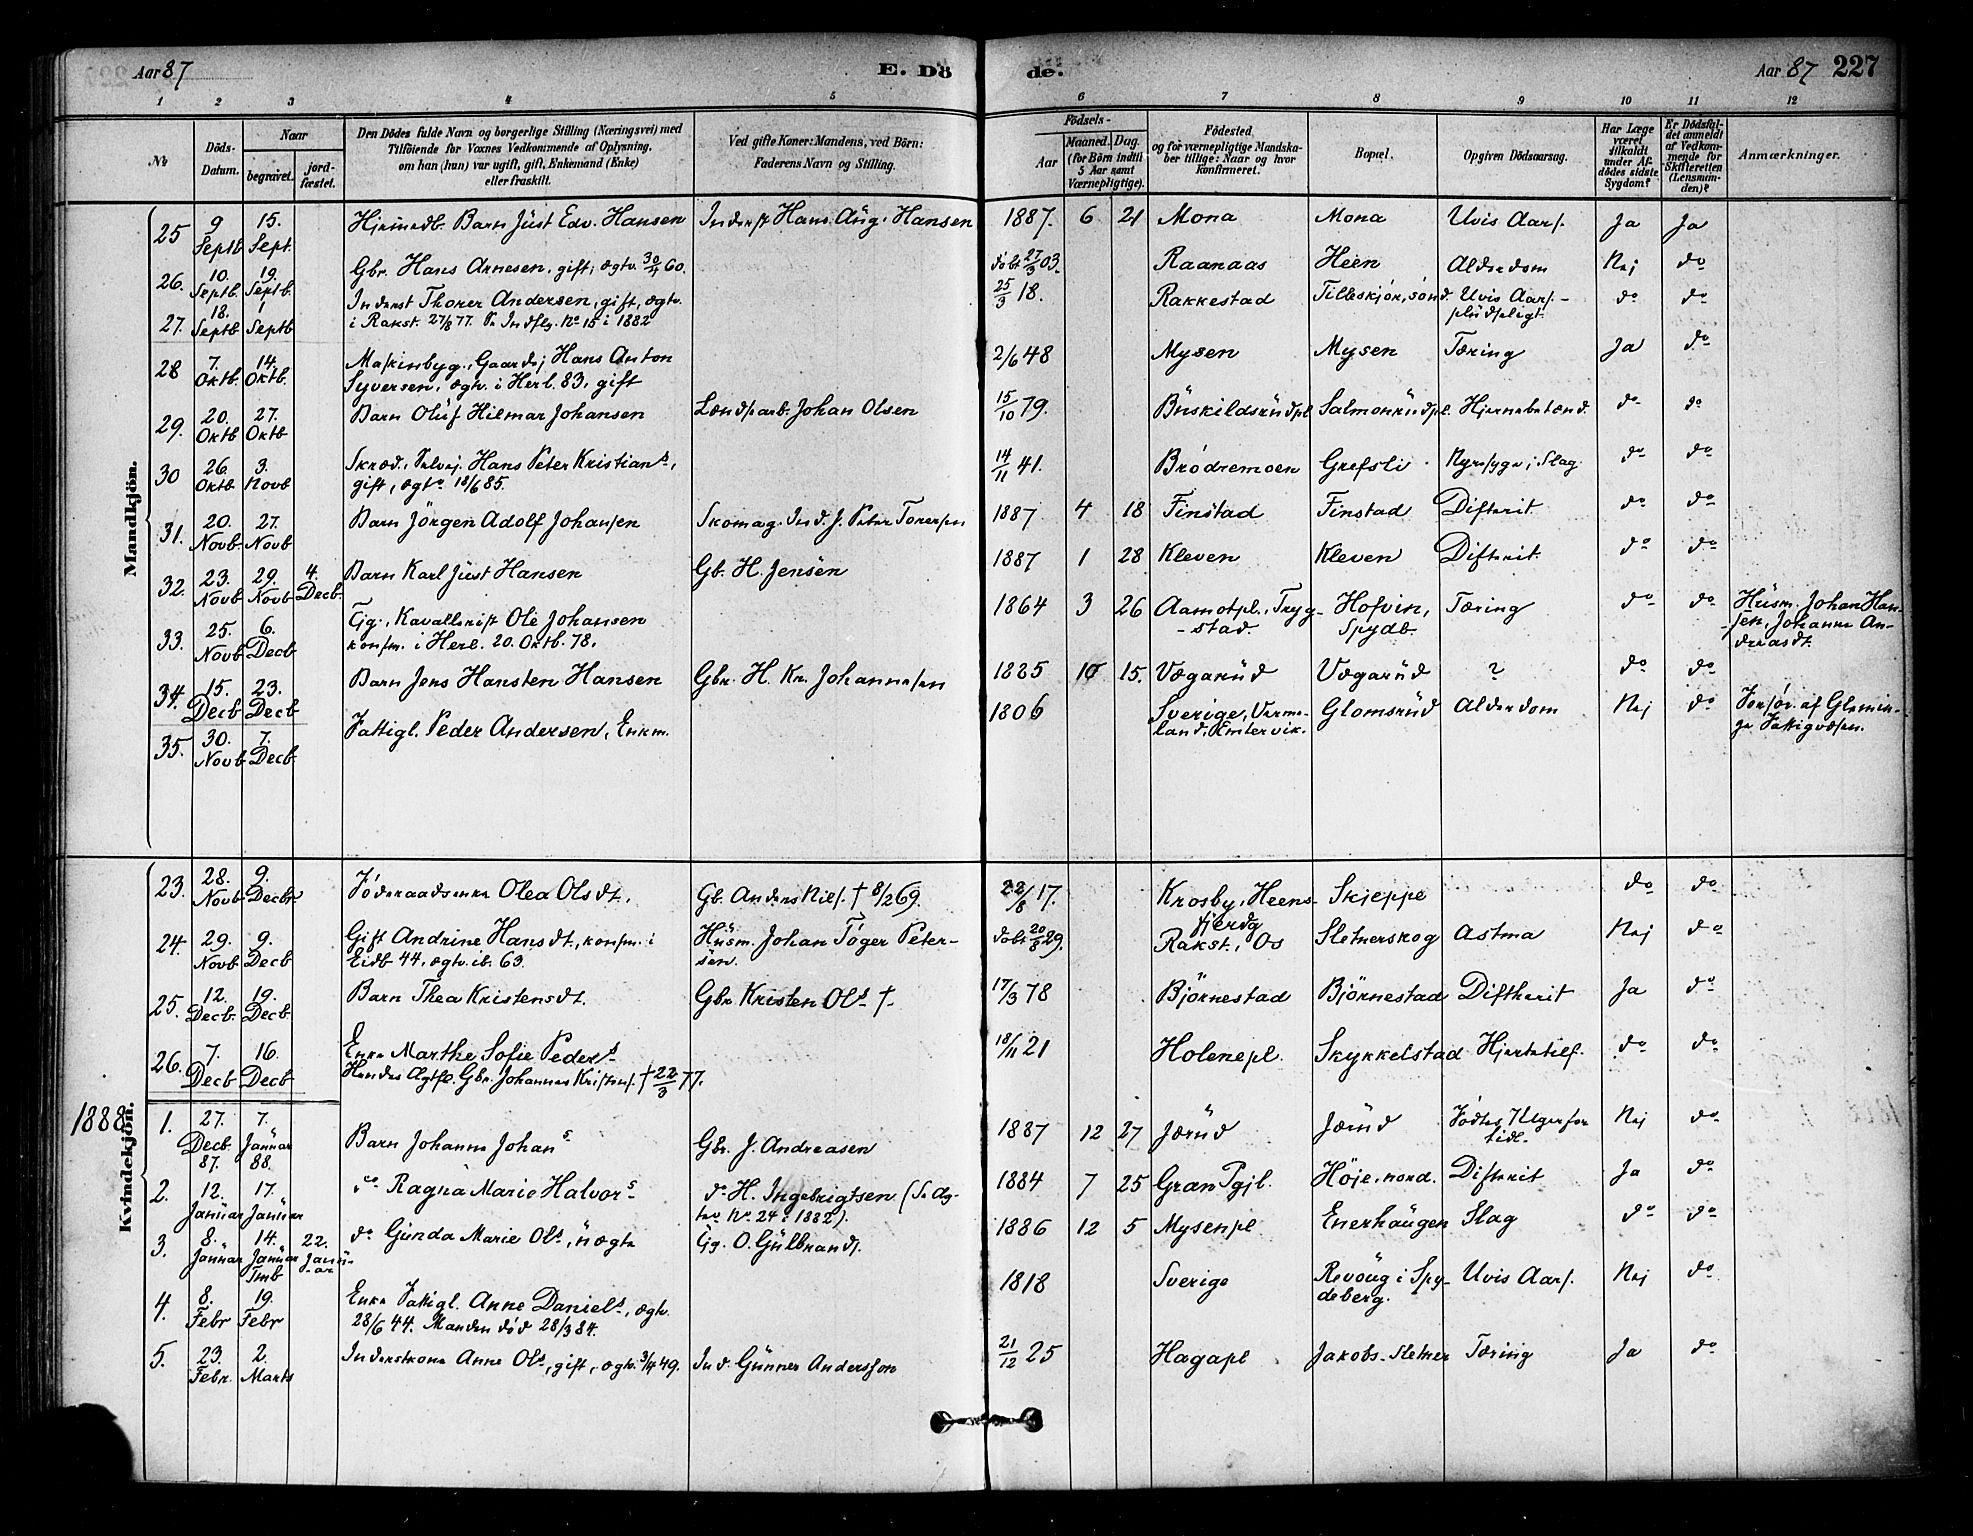 Aar 87
E. Dö
de.
Aar 87 227
1 2 3 4 5 6 7 8 9 10 11 12
No
Döds-Datum.
Naar
begravet.
jordfæstet.
Den Dödes fulde Navn og borgerlige Stilling (Næringsvei) med
Tilföiende for Voxnes Vedkommende af Oplysning,
om han (hun) var ugift, gift, Enkemand (Enke)
eller fraskilt.
Ved gifte Koner: Mandens, ved Börn:
Faderens Navn og Stilling.
Födsels-
Aar
Maaned. Dag.
(for Börn indtil
5 Aar samt
Værnepligtige).
Födested
og for værnepligtige Mandskaber tillige: Naar og hvor
konfirmeret.
Bopæl.
Opgiven Dödsaarsag.
Har Læge
været
tilkaldt
under Afdödes sidste
Sygdom?
Er Dödsfaldet anmeldt
af Vedkommende for
Skifteretten
(Lensmanden)?
Anmærkninger.
Mandkjön.
25 9 Septb. 15. Sept. Hjemmedb. Barn Just Edv. Hansen Inderst Hans Aug. Hansen 1887. 6 21 Mona Mona Uvis Aars. Ja Ja
26. 10. Septb. 19. Septb. Gbr. Hans Arnesen, gift, ægtv. 30/11 60. döbt 27/3 03. Raanaas Heen Alderdom Nej do
27. 18. Septb 1 Septb Inderst Thorer Andersen, gift, ægtv. 25/3 18. Rakkestad Tilleskjör, sönd. Uvis Aars. - do do
i Rakst. 27/8 77. Se Indflg. No 15 i 1882 pludseligt.
28 7. Oktb. 14. Oktb. Maskinbyg., Gaardej Hans Anton 2/6 48 Mysen Mysen Tæring Ja do
Syversen, ægtv. i Herl. 83, gift
29. 20. Oktb 27. Oktb Barn Oluf Hilmar Johansen Landsarb. Johan Olsen 15/10 79. Buskildsrudpl. Salmonrudpl. Hjernebetænd. do do
30 26. Oktb 3. Novb Skræd., Selvej. Hans Peter Kristians., 14/11 41. Brödremoen Grefsli Nyresyge i Slag do do
gift, ægtv 18/6 85.
31. 20. Novb. 27. Novb Barn Jörgen Adolf Johansen Skomag. Ind. J. Peter Torersen 1887 4 18 Finstad Finstad Difterit do do
32. 23. Novb 29. Novb 4. Decb. Barn Karl Just Hansen Gb. H. Jensen 1887 1 28 Kleven Kleven Difterit do do
33. 25. Novb 6. Decb Tjg., Kavallerist Ole Johansen 1864 3 26 Aamotpl., Trygstad. Hofvin, Spydb. Tæring do do Husm. Johan Hansen, Johanne Andreasdt.
konfm. i Herl. 20. Oktb. 78.
34. 15. Decb 23. Decb Barn Jens Hansten Hansen Gbr. H. Kr. Johannesen 1885 10 15. Vægarud Vægarud ? do do
35. 30. Novb 7. Decb Fattigl. Peder Andersen, Enkm. 1806 Sverige, Vermeland, Emtervik. Glomsrud Alderdom Nej do Forsör. af Gleminge Fattigvæsen.
Kvindekjön.
23. 28. Novb 9. Decbr Föderaadsenke Olea Olsdt. Gb. Anders Niels. † 8/2 69. 22/8 17. Krosby, Heensfjerdg Skjeppe do do
24. 29. Novb 9. Decb Gift Andrine Hansdt, konfm. i Husm. Johan Töger Petersen. döbt 20/8 29. Rakst., Os Sletnerskog Astma Nej do
Eidb 44, ægtv. ib. 63.
25. 12. Decb. 19. Decb. Barn Thea Kristensdt. Gbr Kristen Ols. †. 17/3 78 Björnestad Björnestad Diftherit Ja do
26. 7. Decb 16. Decb Enke Marthe Sofie Peders. 18/11 21 Holenepl. Skykkelstad Hjertetilf. do do
Hendes Ægtfl. Gbr. Johannes Kristens. † 22/3 77.
1888
1. 27. Decb. 87. 7. Januar 88. Barn Johanne Johans Gbr. J. Andreasen 1887 12 27 Jærud Jærud Födtes Uger for tidl. Nej do
2. 12. Januar 17. Januar do Ragna Marie Halvors do H. Ingebrigtsen (Se Ægtev. No 24 i 1882). 1884 7 25 Gran Pgjl. Höje, nord. Difterit Ja do
3. 8. Januar 14. Januar Tmb 22. Januar do Gunda Marie Ols., uægte Gg. O. Gulbrands. 1886 12 5 Mysenpl Enerhaugen Slag do do
4. 8. Febr 19. Febr Enke Fattigl. Anne Daniels., ægtv. 1818 Sverige Revoug i Spydeberg. Uvis Aars. Nej do
28/6 44. Manden död 28/3 84.
5. 23. Febr. 2. Marts Inderstkone Anne Ols, gift, ægtv. 3/4 49. Ind. Gunner Anderson 21/12 25 Hagapl Jakobs-Sletner Tæring Ja do